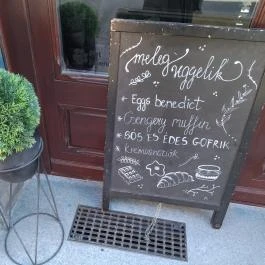 meleg
reggelik
* Eggs benedict
* Csengery muffin
* SÓS ÉS ÉDES GOFRIK
* Kremvariációk